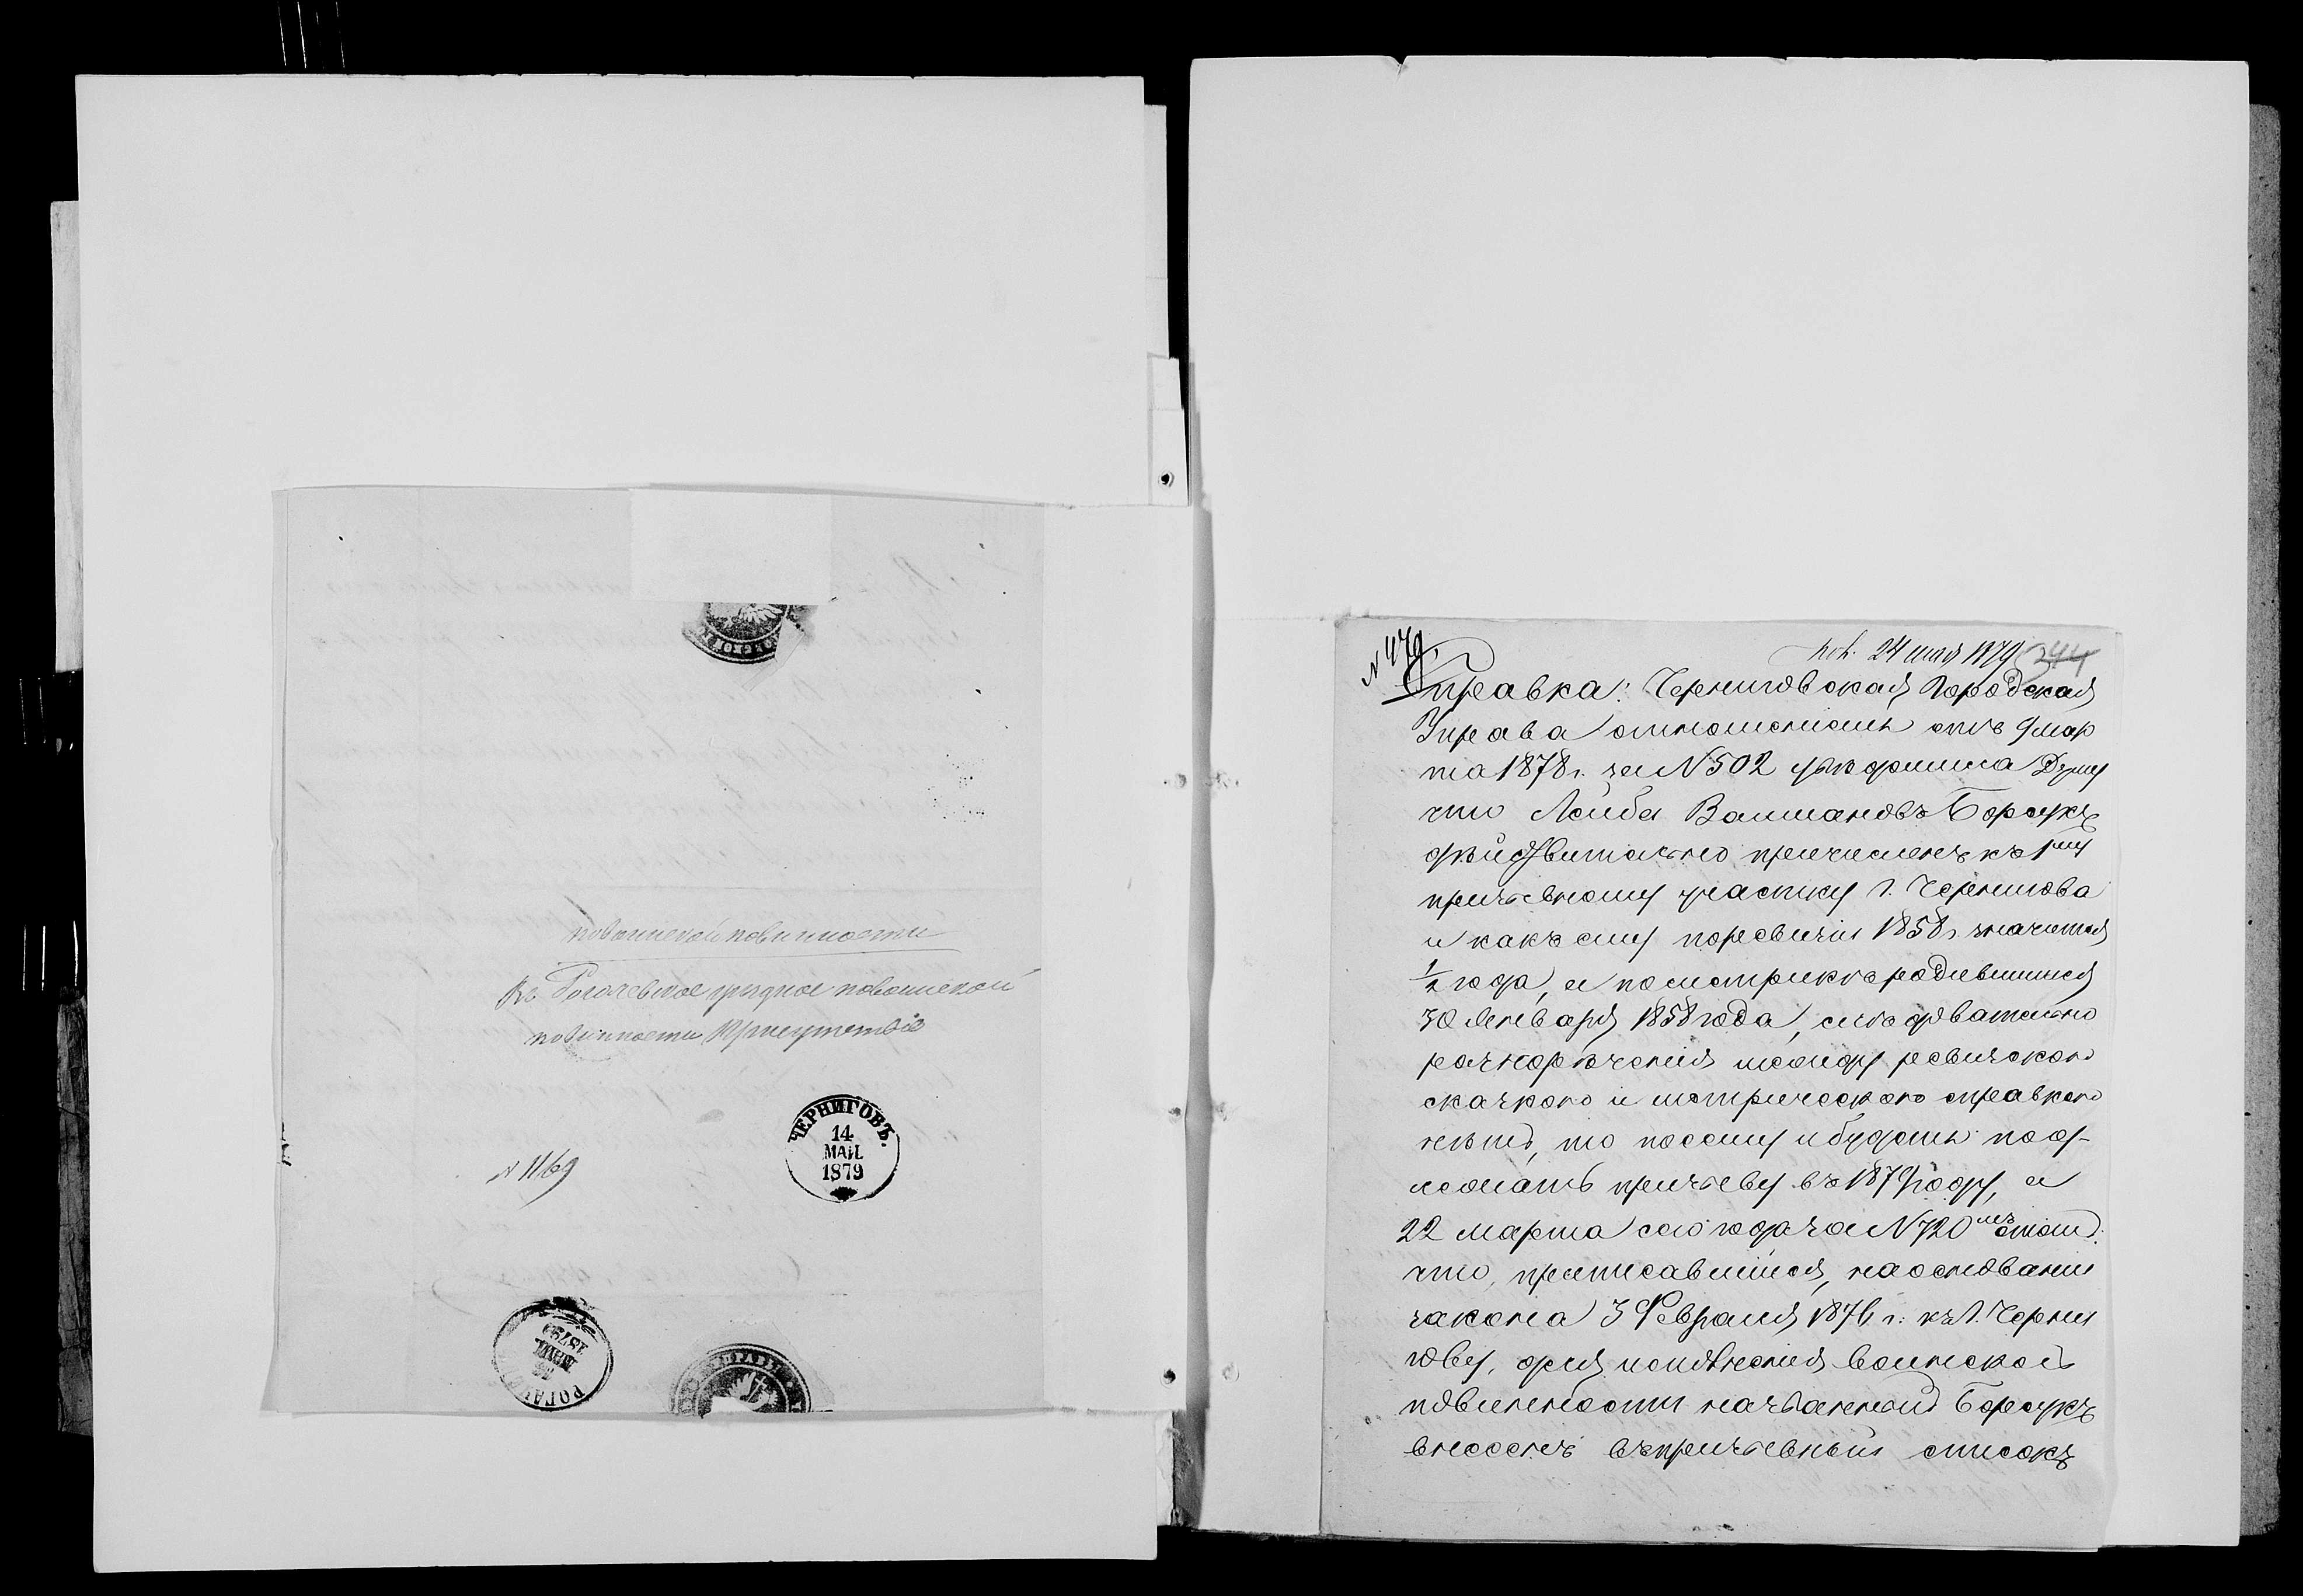 повинности
Въ Рогачевское уѣздное по воинской
повинности Присутствіе
ЧЕРНИГОВЪ.
14
МАІЯ
1879
N 1169
РОГАЧ
1879
24 мая 1879
244
N 479.
Справка: Черниговская Городская
Управа отношеніемъ отъ 9 мар
та 1878 г. за N 502 увѣдомила Думу
что Лейба Вашмановъ Борукъ
дѣйствительно причисленъ къ 1му
призывному участку г. Чернигова
и какъ ему по ревизіи 1858 г. значится
1/2 года, а по метрикѣ родившимся
30 Января 1858 года, слѣдовательно
разнорѣченія между ревизскою
сказкою и метрическою справкою
нѣтъ, то посему и будетъ под-
лежать призыву въ 1879 году, а
22 марта сего года за N 720
что, приписавшійся, на основаніи
закона 3 Февраля 1876 г. къ г. Черни
гову, для исполненія воинской
повинности названный Борукъ
внесенъ въ призывный списокъ